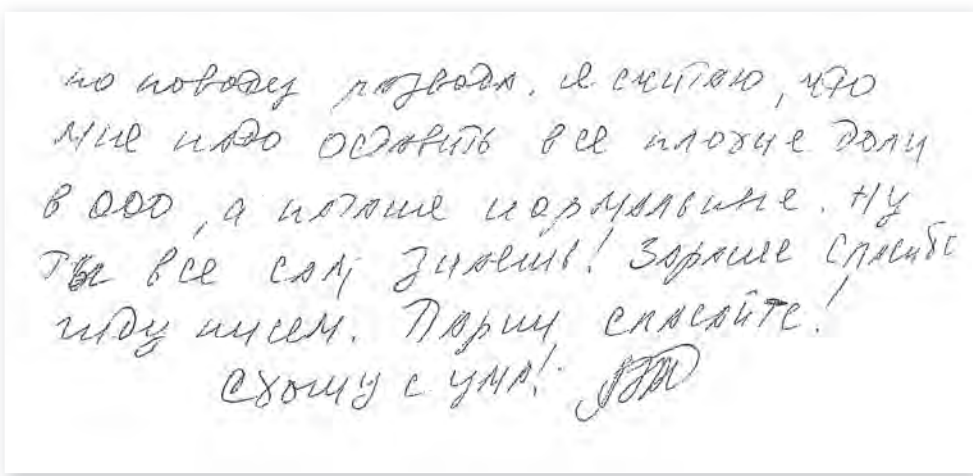 по поводу развода. Я считаю, что
мне надо оставить все плохие доли
в ООО, а Наташе нормальные. Ну
ты все сам знаешь! Заранее спасибо
жду писем. Парни спасайте!
Схожу с ума!